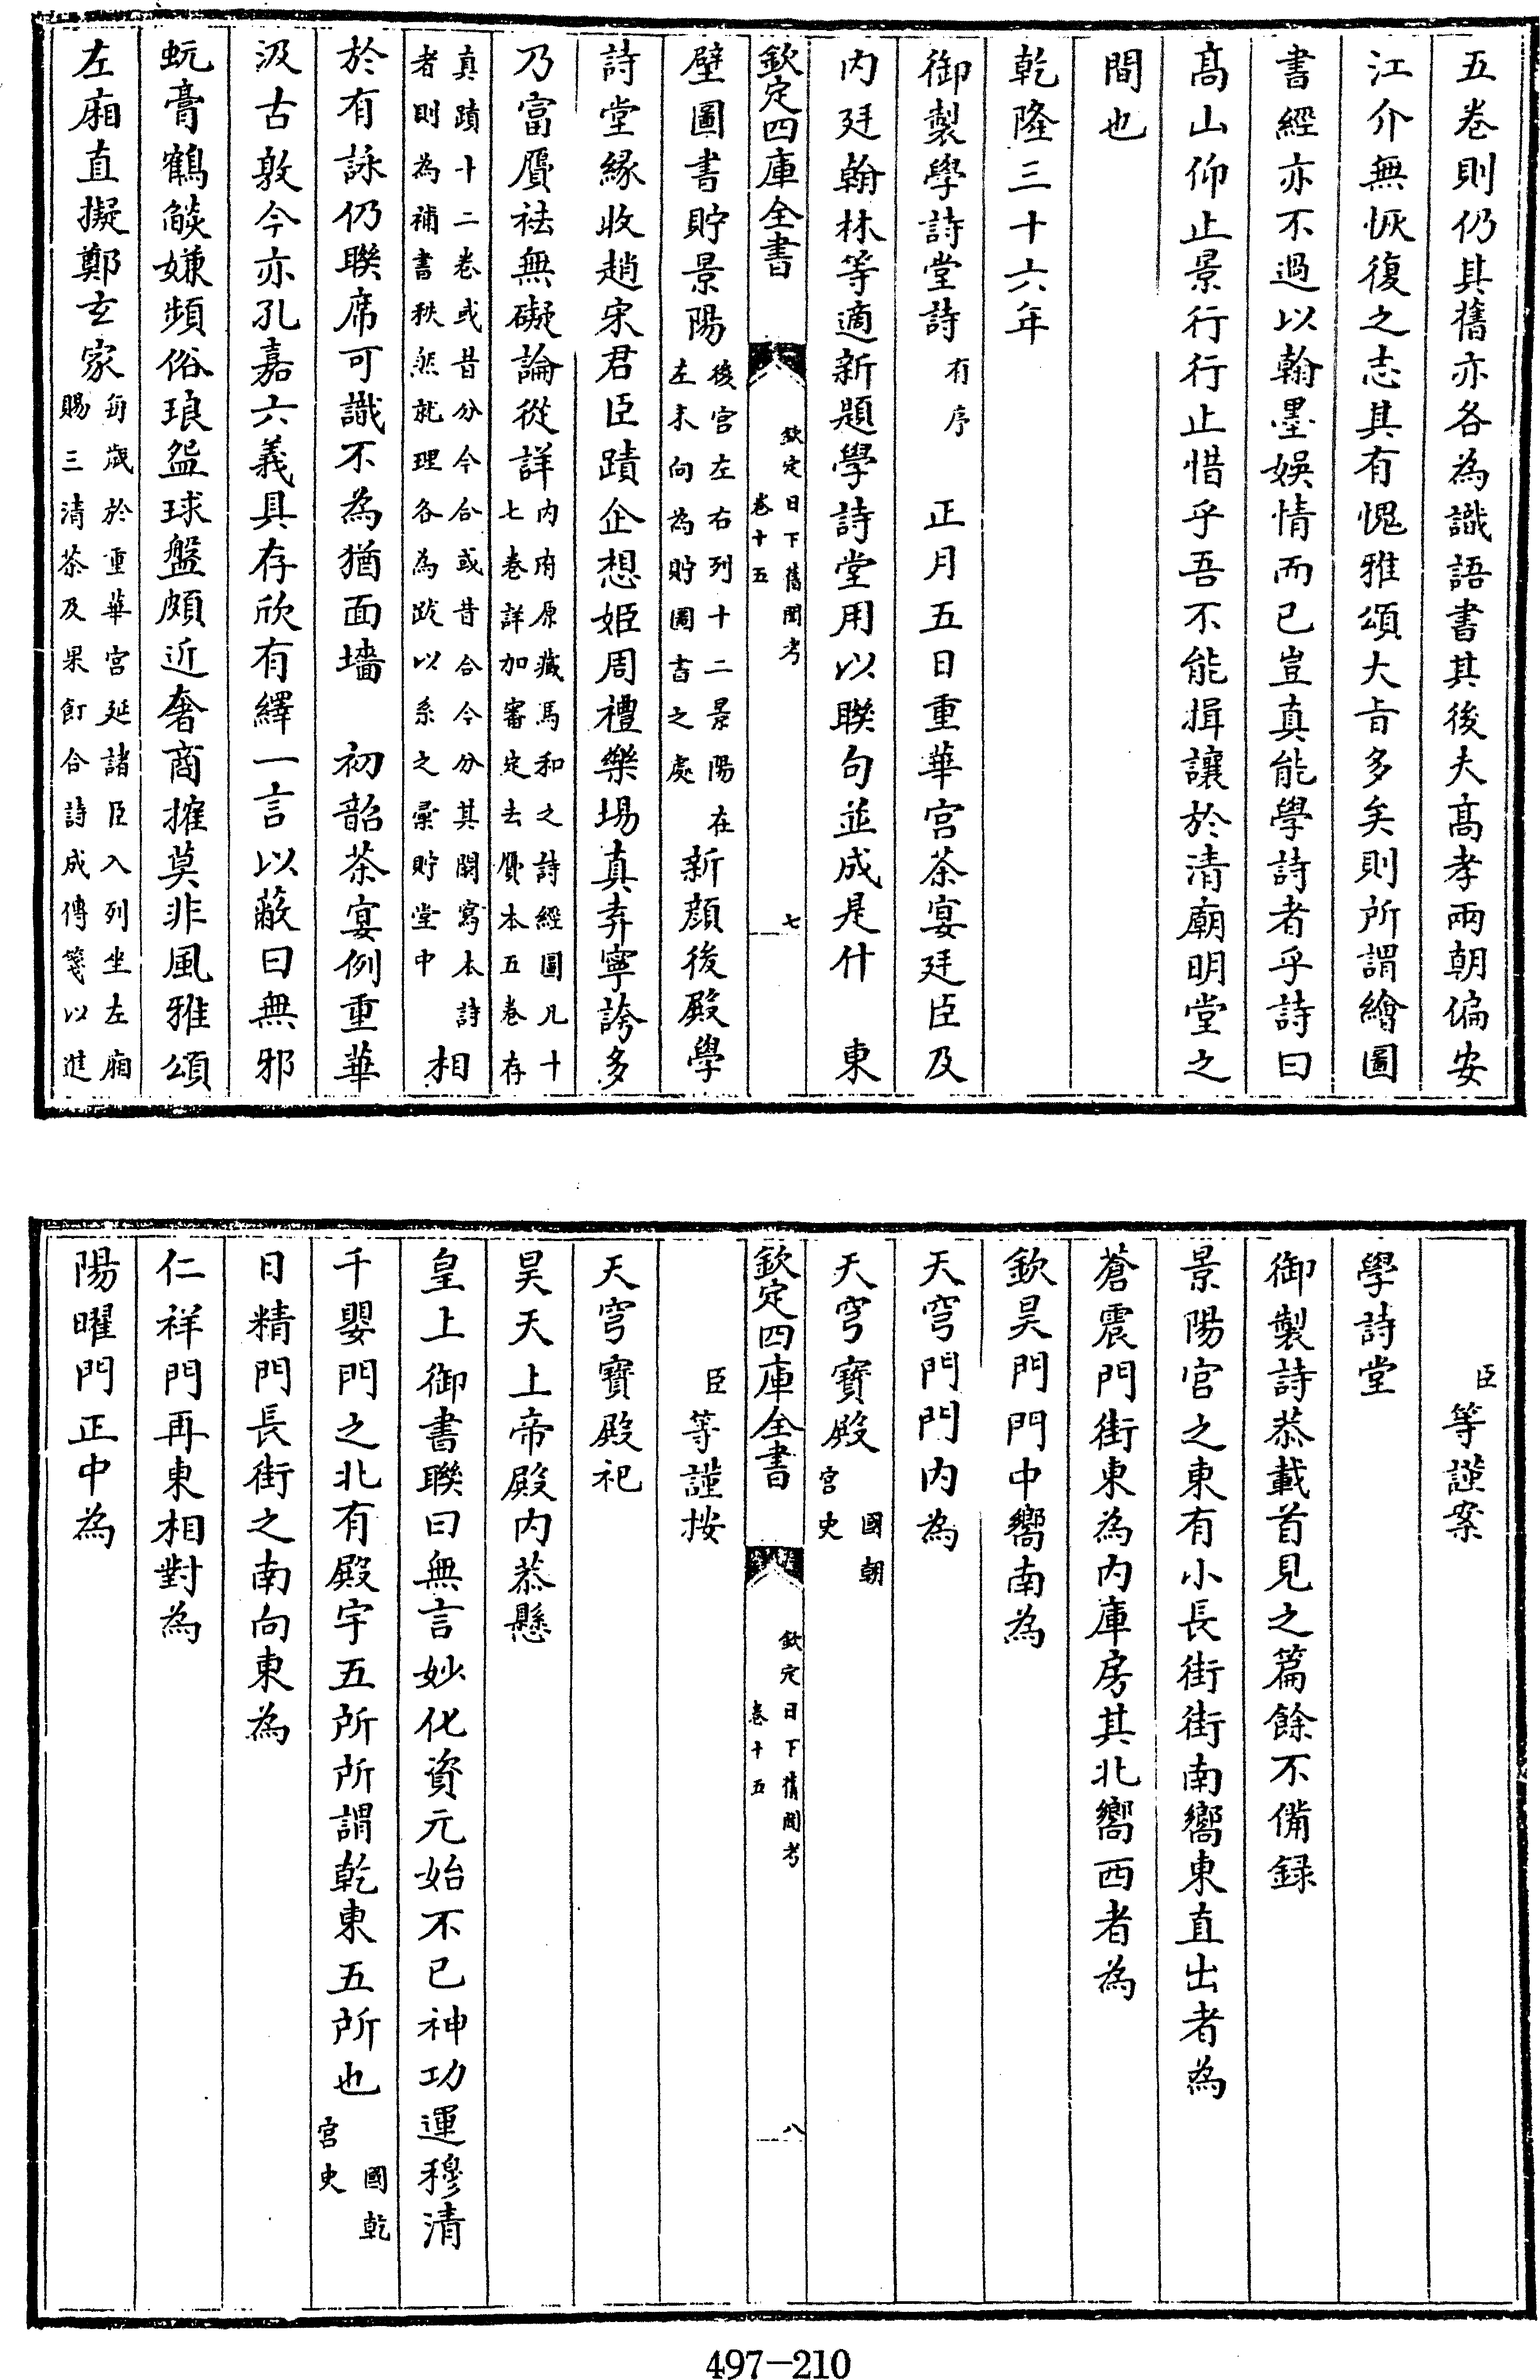 五卷則仍其舊亦各為識語書其後夫高孝兩朝偏安
江介無恢復之志其有愧雅頌大旨多矣則所謂繪圖
書經亦不過以翰墨娛情而已豈真能學詩者乎詩曰
高山仰止景行行止惜乎吾不能揖讓於清廟明堂之
間也
乾隆三十六年
御製學詩堂詩 有序 正月五日重華宮茶宴廷臣及
内廷翰林等適新題學詩堂用以聯句並成是什 東
欽定四庫全書 欽定日下舊聞考 卷十五 七
壁圖書貯景陽 後宮左右列十二景陽在左末向為貯圖書之處 新顔後殿學
詩堂緣收趙宋君臣蹟企想姬周禮樂場真弆寧誇多
乃富贋袪無礙論從詳 内府原藏馬和之詩經圖凡十七卷詳加審定去贋本五卷存
真蹟十二卷或昔分今合或昔合今分其闕寫本詩者則為補書秩然就理各為跋以系之彚貯堂中 相
於有詠仍聯席可識不為猶面墻 初韶茶宴例重華
汲古敩今亦孔嘉六義具存欣有繹一言以蔽曰無邪
蚖膏鶴燄嫌頻俗琅盌球盤頗近奢商搉莫非風雅頌
左廂直擬鄭玄家 每歲於重華宮延諸臣入列坐左廂賜三清茶及果飣合詩成傳箋以進
臣等謹案
學詩堂
御製詩恭載首見之篇餘不備録
景陽宮之東有小長街街南嚮東直出者為
蒼震門街東為内庫房其北嚮西者為
欽昊門門中嚮南為
天穹門門内為
天穹寶殿 國朝宮史
欽定四庫全書 欽定日下舊聞考 卷十五 八
臣等謹按
天穹寶殿祀
昊天上帝殿内恭懸
皇上御書聯曰無言妙化資元始不已神功運穆清
千嬰門之北有殿宇五所所謂乾東五所也 國乾宮史
日精門長街之南向東為
仁祥門再東相對為
陽曜門正中為
497-210